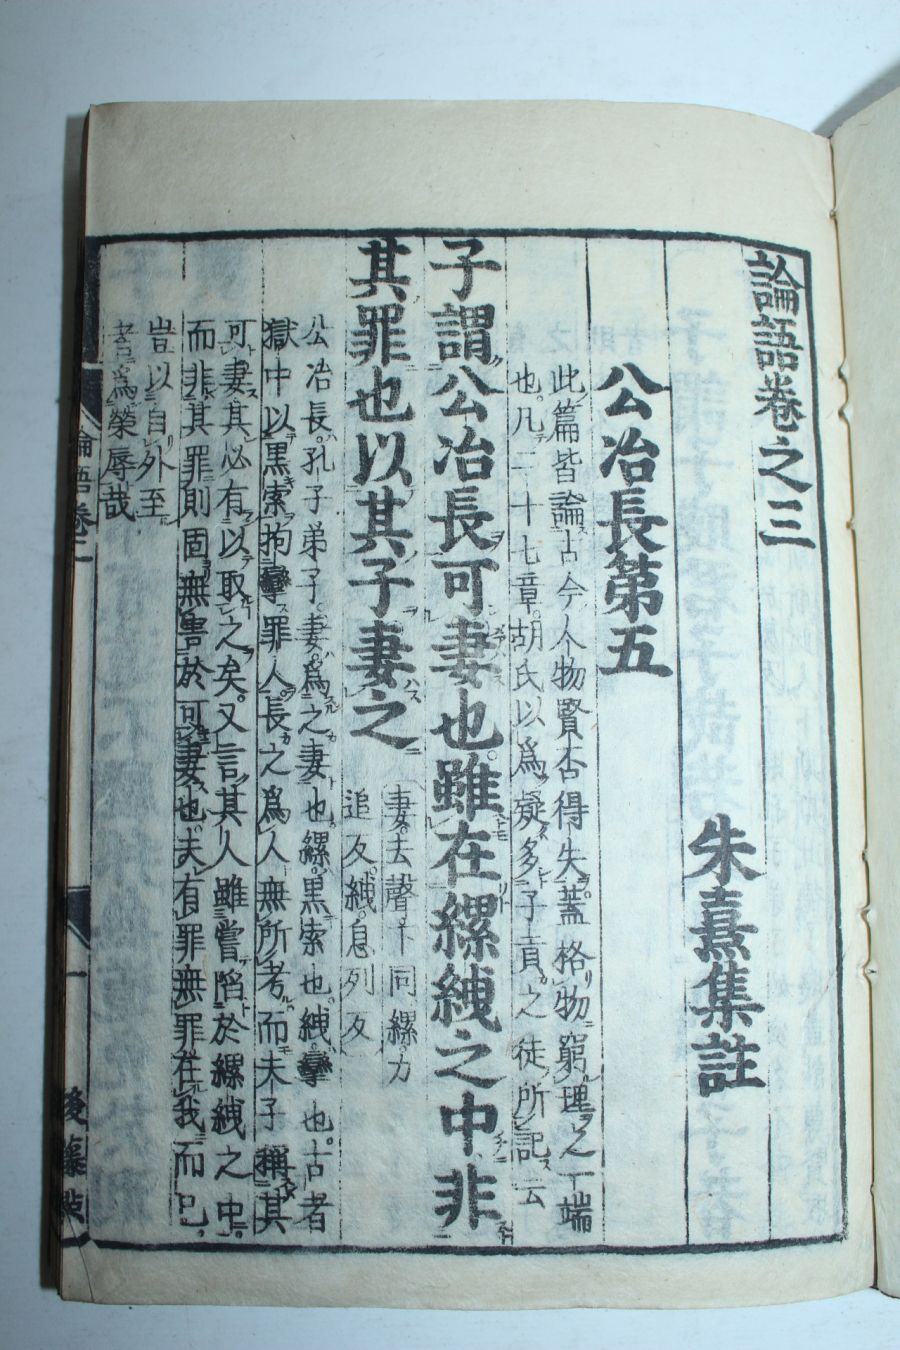 論語卷之三
朱熹集註
公冶長第五
此篇皆論古今人物賢否得失蓋格物窮理之一端
也凡二十七章胡氏以爲疑多子貢之徒所記云
子謂公冶長可妻也雖在縲絏之中非
其罪也以其子妻之
妻去聲下同縲力
追反絏息列反
公冶長孔子弟子妻爲之妻也縲黒索也絏攣也古者
獄中以黒索拘攣罪人長之爲人無所考而夫子稱其
可妻其必有以取之矣又言其人雖嘗陷於縲絏之中
而非其罪則固無害於可妻也夫有罪無罪在我而已
豈以自外至
者爲榮辱哉
論語卷三
一
後藤點